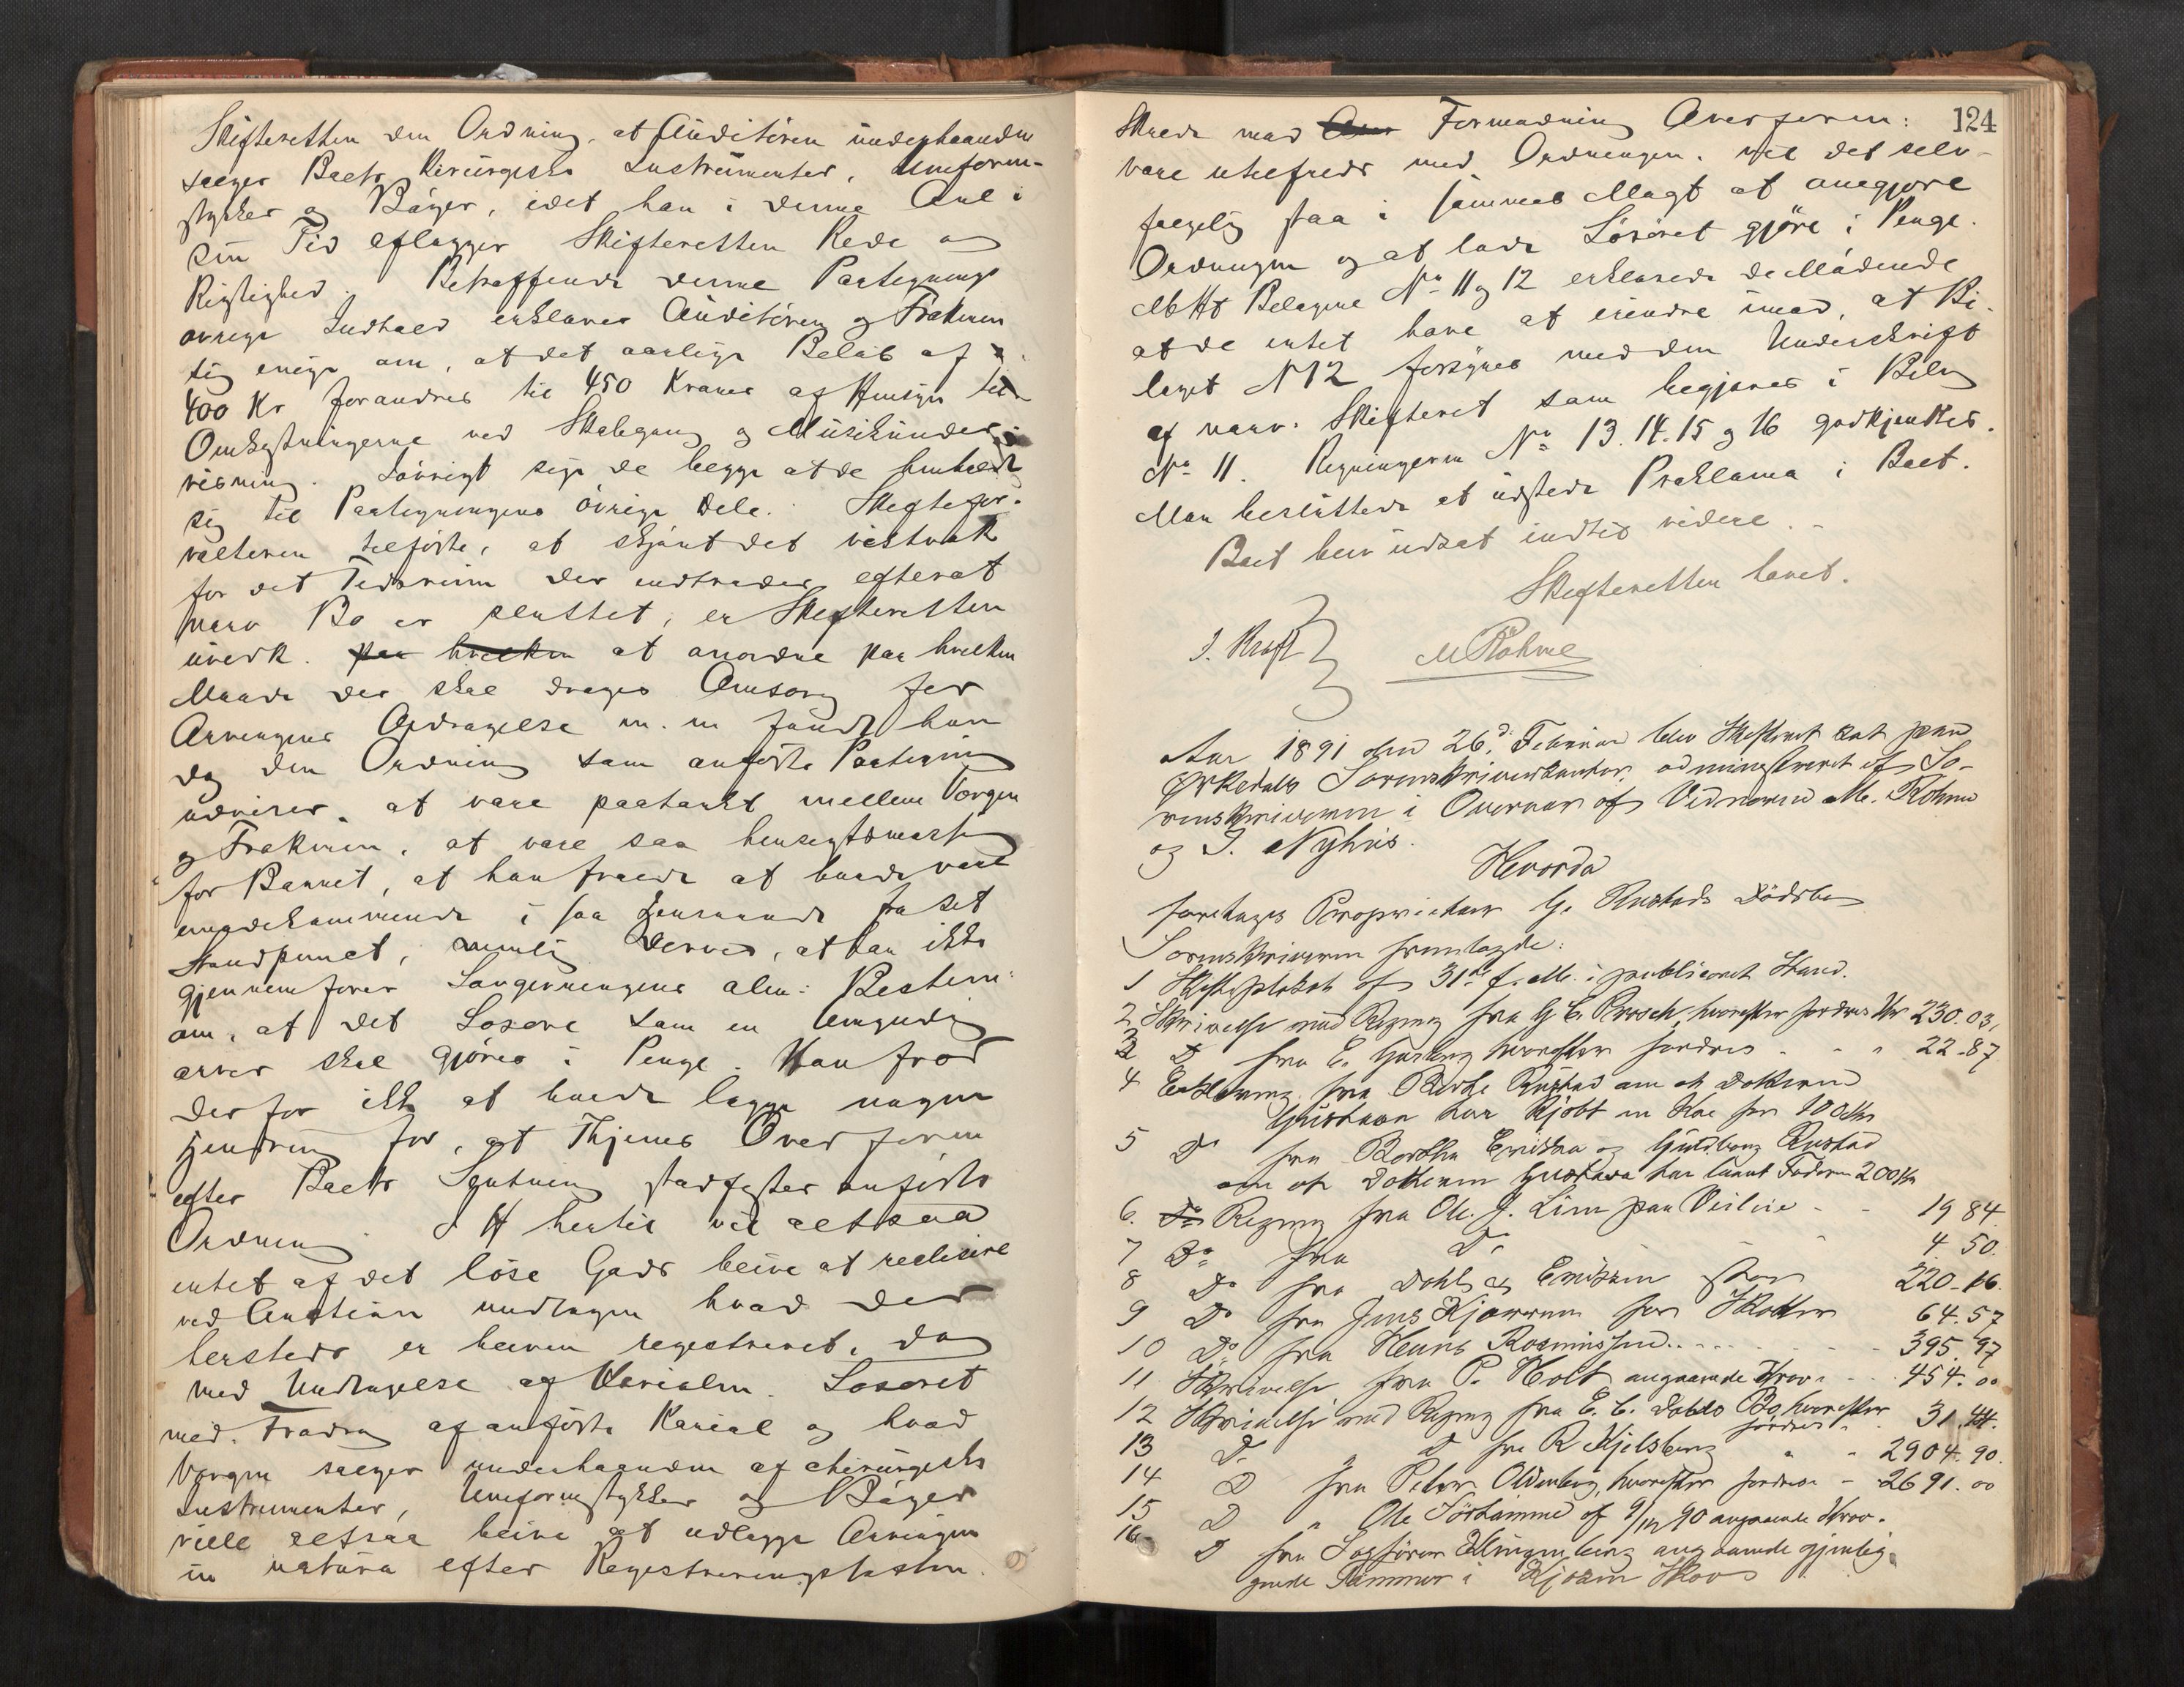 Skifteretten den Ordning, at Auditøren underhaanden
sælger Boets kirurgiske Instrumenter, Uniform-
stykker og Bøger, idet han i denne Anl i
sin Tid aflægger Skifteretten Rede og
Rigtighed. Betræffende denne Paategnings
øvrige Indhold erklærer Auditøren og Frøkenen
sig enige om, at det aarlige Beløb af
400 Kr forandres til 450 Kroner af Hensyn til
Omkostningerne ved Skolegang og Musikunder-
visning. Iøvrigt siger de begge at de henholdt
sig til Paategningens øvrige Dele. Skiftefor-
valteren tilføiede, at skjønt det vistnok
for det Tidsrum der indtræder efterat
nærv Bo er sluttet, er Skifteretten
uvedk. paa hvilken at anordne paa hvilken
Maade der skal drages Omsorg for
Arvingens Opdragelse m. m fandt han
dog den Ordning som anførte Paategning
udviser, at være paatænkt mellem Værgen
og Frøkenen, at være saa hensigtsmæssig
for Barnet, at han troede at burde være
imødekommende i saa Henseende fra sit
Standpunct, nemlig derved, at han ikke
gjennemfører Lovgivningens alm: Bestem:
om, at det Løsøre som en Umyndig
arver skal gjøres i Penge. Han trod
derfor ikke at burde lægge nogen
Hindring for, at Thjemes Overform
efter Boets Slutning stadfæster anførte
Ordning. I H hertil vil altsaa
intet af det løse Gods blive at realisere
ved Auction undtagen hvad der
hersteds er bleven registreret, dog
med Undtagelse af Kariolen. Løsøret
med Fradrag af anførte Kariol og hvad
Værgen sælger underhaanden af chirurgiske
Instrumenter, Uniformstykker og Bøger
ville altsaa blive at udlægge Arvingen
in natura efter Registreringstaxten.
124
Skrede mod Formodning Overform:
være utilfreds med Ordningen, vil det selv-
følgelig staa i sammes Magt at omgjøre
Ordningen og at lade Løsøret gjøre i Penge.
M Ht Bilagene No 11 og 12 erklærede de Mødende
at de intet have at erindre imod, at Bi-
laget N 12 forsynes med den Underskrift
af nærv. Skifteret som begjæres i Bilag
No 11. Regningerne No 13. 14. 15 og 16 godkjendtes.
Man besluttede at udstede Proklama i Boet.
Boet blev udsat indtil videre. -
Skifteretten hævet.
J. Kraft
M Røhme
Aar 1891 den 26de Februar blev Skifteret sat paa
Ørkedals Sorenskriverkontor, administreret af So-
renskriveren i Overvær af Vidnerne M. Røhme
og J. Nyhus.
Hvorda
foretoges Proprietær G. Rustads Dødsbo
Sorenskriveren fremlagde:
1 Skifteplakat af 31te f. M. i publiceret Stand.
2 Skrivelse med Regning fra G C Brosch, hvorefter fordres Kr 230.03,
3 Do fra E. Gusberg hvorefter fordres - - " 22-87
4 Erklæring fra Berthe Rustad om at Datteren
Gustava har kjøbt en Ko for 100 Kr
5 Do fra Berthe Erikka og Guldborg Rustad
om at Datteren Gustava har laant Faderen 200 Kr
6. Do Regning fra Ol. J. Lium paa - - 19 84.
7 Do fra Do " 4. 50.
8 Do fra Dahls og Eriksen stor 220-16.
9 Do fra Jens Kjørrem for Skatter 64.57
10 Do fra Hans Rasmussen. . - - - - 395.97
11 Skrivelse fra P. Holt angaaende Krav - - - 454.00
12 Skrivelse med Regning fra E. C. Dahls Bo, hvorefter
fordres " . 31.44.
13 Do " D fra R Kjelsberg " - 2904.90.
14 D fra Peter Oldenborg, hvorefter fordres - 2691.00
15 D " Ole Sørhamme af 9/12 90 angaaende Krav.
16 D fra Sagfører Klingenberg angaaende gjenlig-
gende Tømmer i Skov